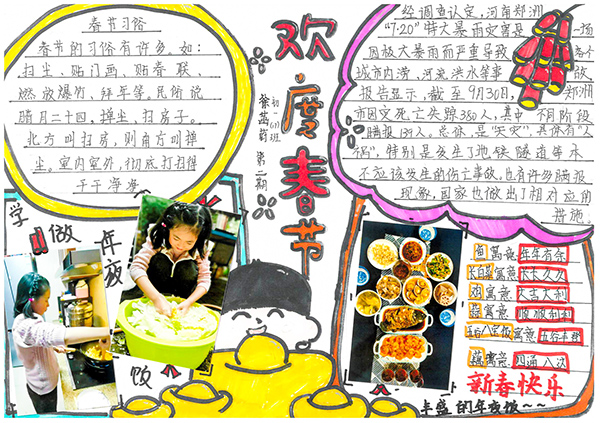 春节习俗
春节的习俗有许多。如:
扫尘、贴门画、贴春联、
燃放爆竹、拜年等。民俗说
腊月二十四，掸尘、扫房子。
北方叫扫房，则南方叫掸
尘。室内室外，彻底打扫得
干干净净
欢度春节
第二期
经调查认定，河南郑州
“7·20”特大暴雨灾害是
一场
因放大暴雨而严重导致
城市内涝，河流洪水等事
故
报告显示，截至9月30日，
郑州
市因灾死亡失踪380人，其中不同阶段
瞒报139人。总体是“天灾”，具体有“人
祸”，特别是发生了地铁、隧道等本
不应该发生的伤亡事故，也有许多瞒报
现象，国家也做出了相对应的
措施。
学做年夜饭
鱼寓意:年年有余
寓意:长长久久
鸡寓意:大吉大利
寓意:顺顺利利
八宝饭寓意:五谷丰登
寓意:四通八达
新春快乐
丰盛的年夜饭~~